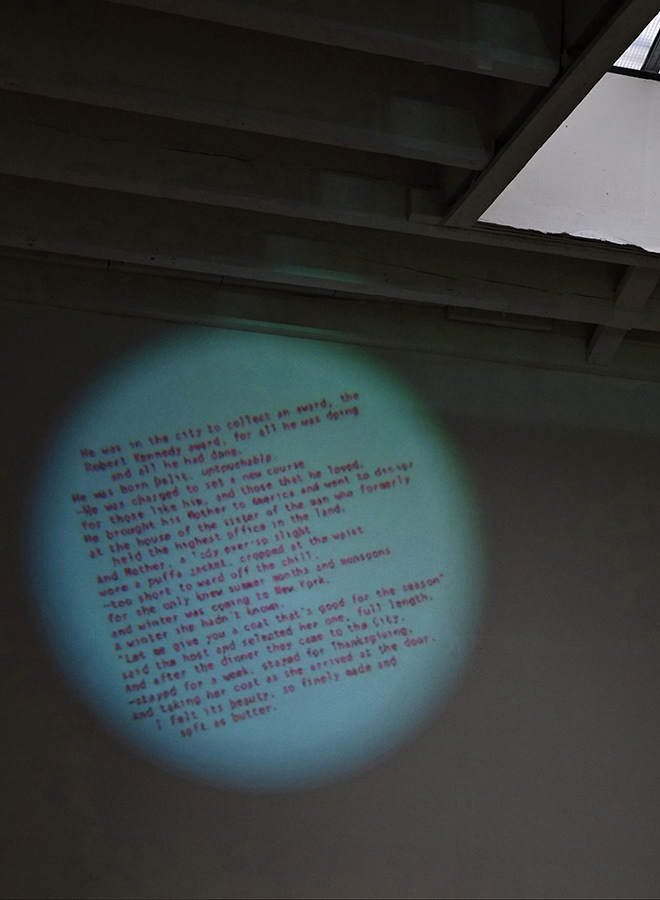 He was in the city to collect an award, the
Robert Kennedy award, for all he was doing
and all he had done.
He was born Dalit, untouchable.
—He was charged to set a new course
for those like him, and those that he loved.
He brought his Mother to America and went to dinner
at the house of the sister of the man who formerly
held the highest office in the land.
And Mother, a lady ever-so slight
wore a puffa jacket, cropped at the waist
—too short to ward off the chill.
for she only knew summer months and monsoons
and winter was coming to New York.
A winter she hadn't known.
"Let me give you a coat that's good for the season"
said the host and selected her one, full length.
And after the dinner they came to the City.
—stayed for a week, stayed for Thanksgiving,
And taking her coat as she arrived at the door.
I felt its beauty, so finely made and
soft as butter.